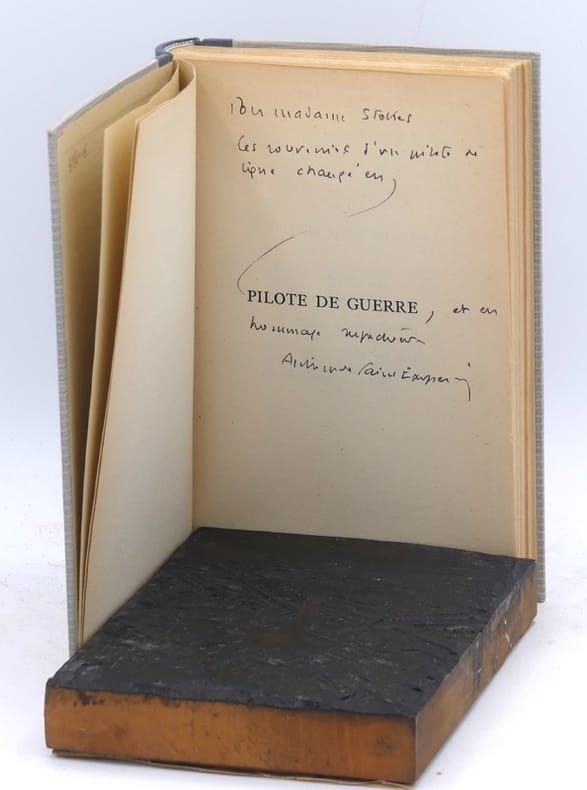 Pour madame Stokes
Ces souvenirs d'un pilote de
ligne changé en,
PILOTE DE GUERRE, et en
hommage
Antoine de Saint Exupéry